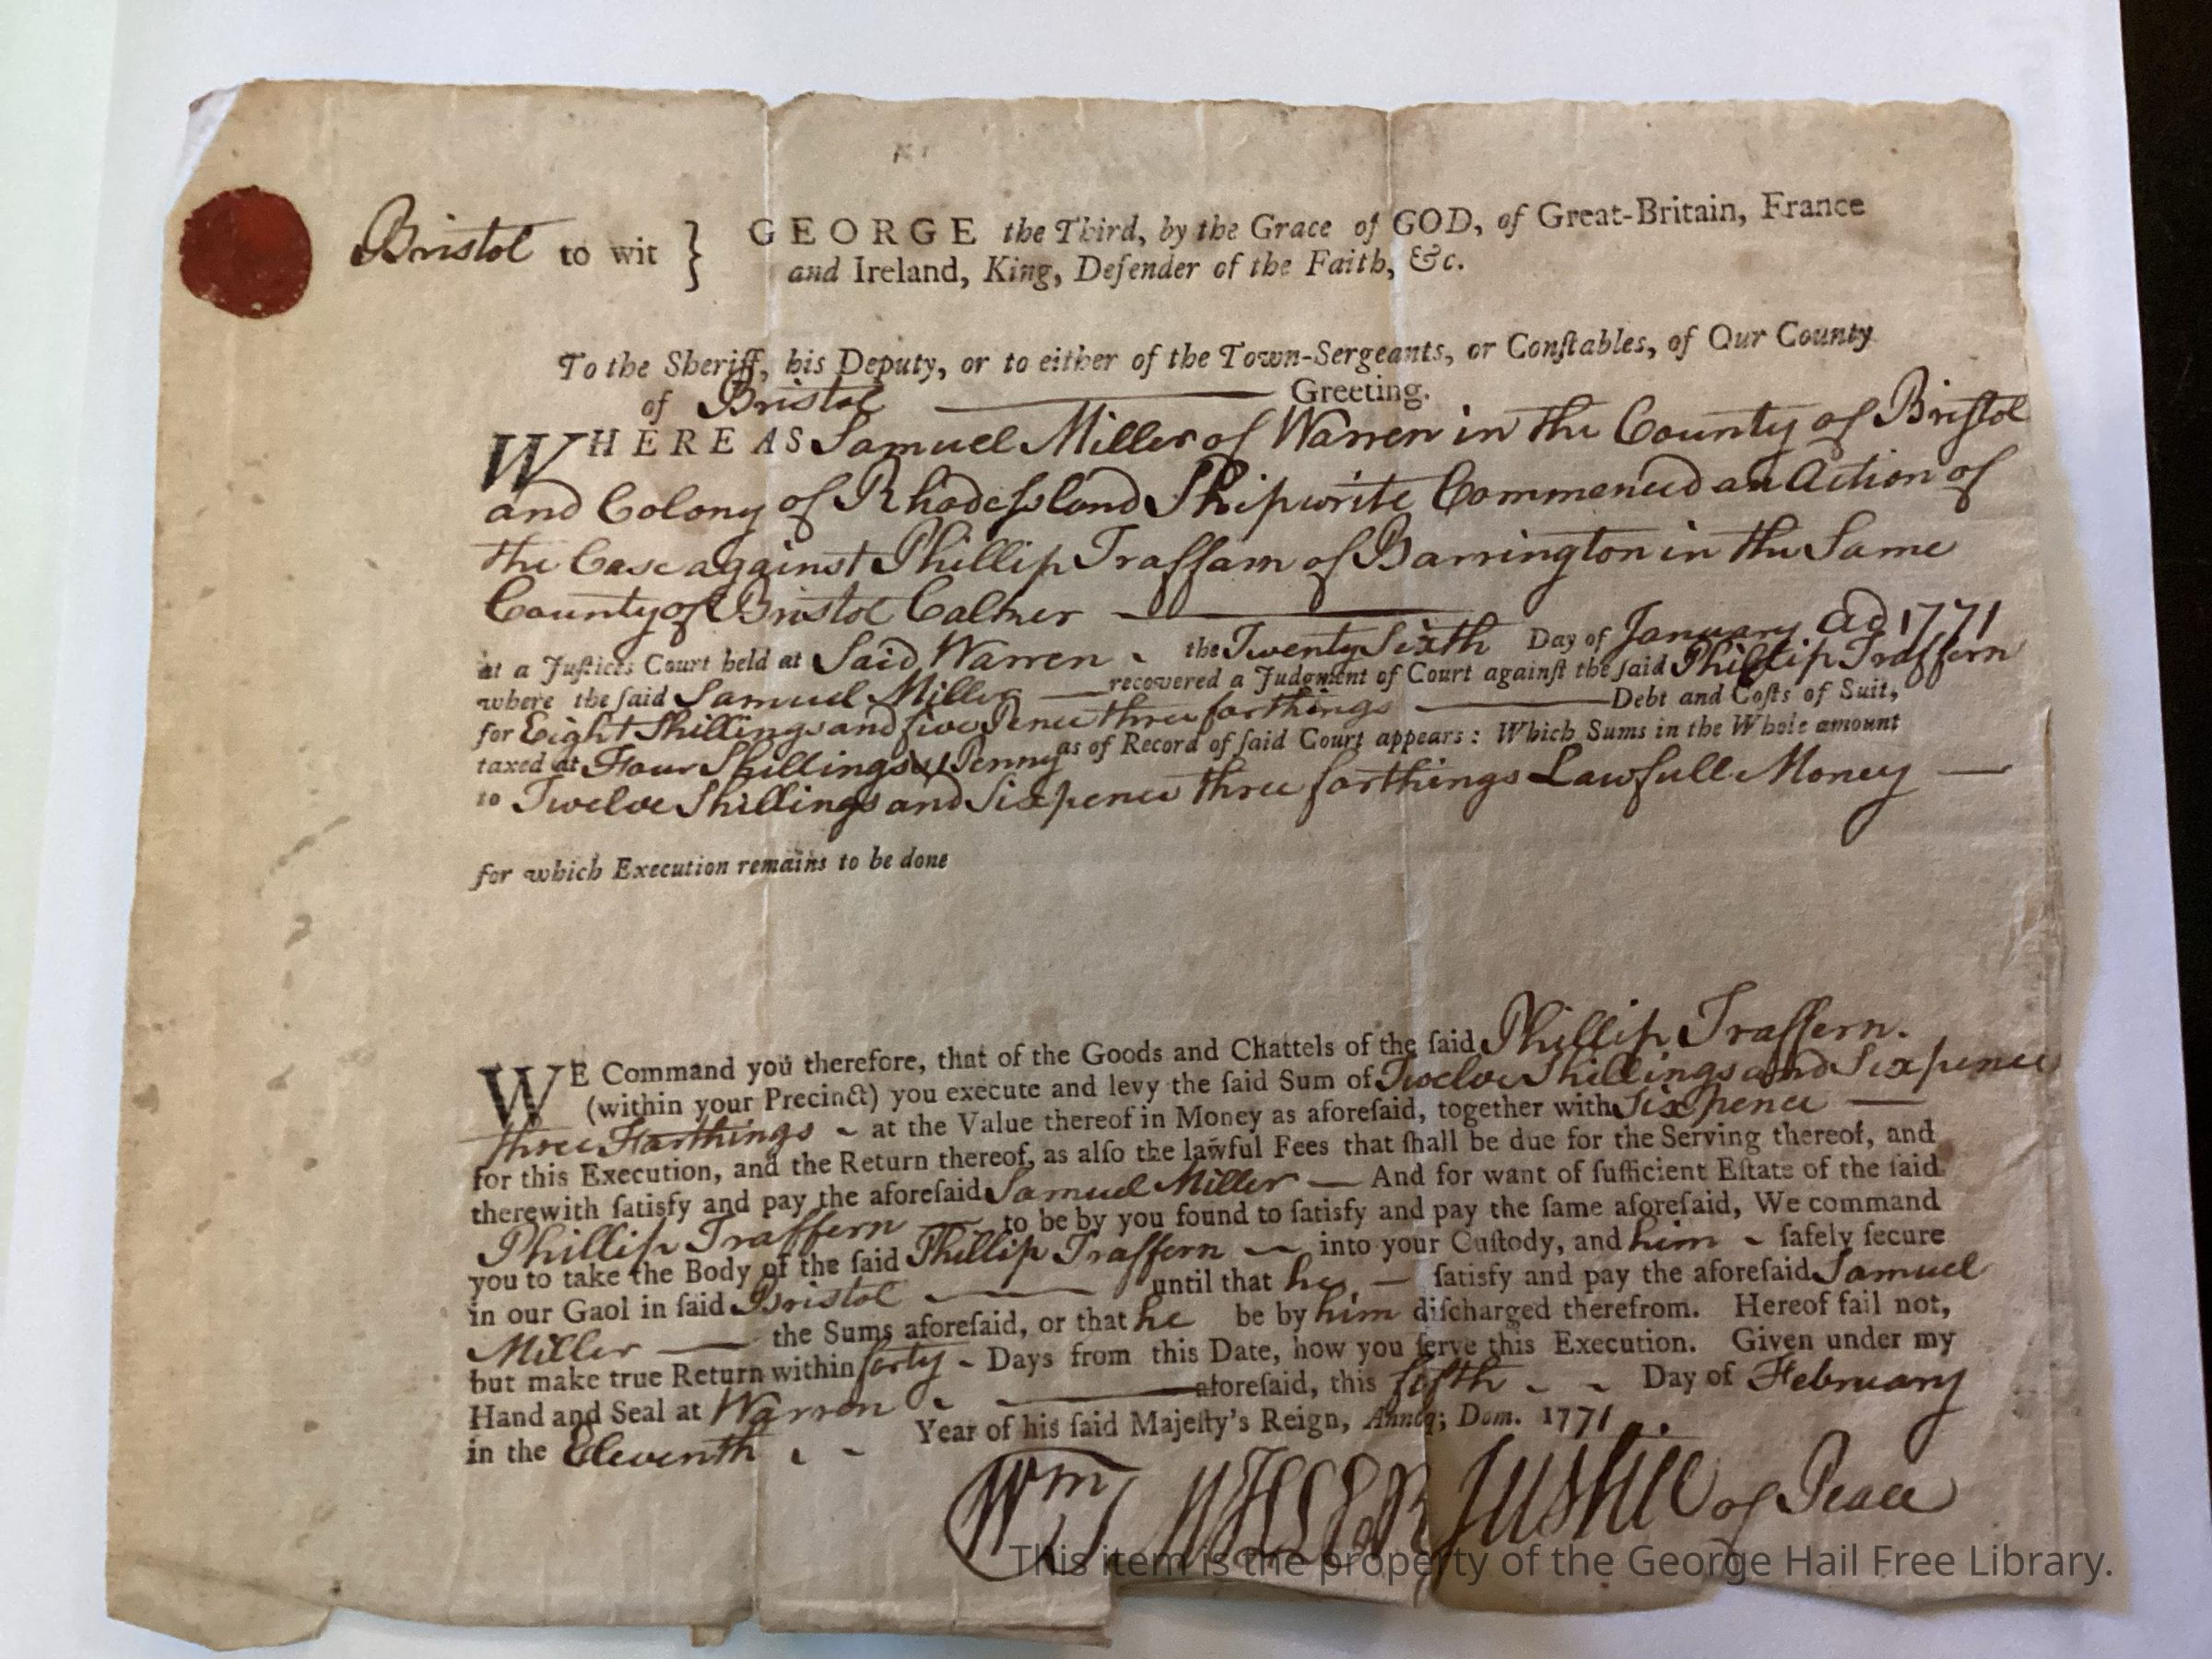 Bristol to wit } GEORGE the Third, by the Grace of GOD, of Great-Britain, France
and Ireland, King, Defender of the Faith, &c.
To the Sheriff, his Deputy, or to either of the Town-Sergeants, or Conſtables, of Our County
of Bristol Greeting.
WHEREAS Samuel Miller of Warren in the County of Bristol
and Colony of Rhodeisland Shipwrite Commenced an Action of
the Case against Phillip Traffarn of Barrington in the Same
County of Bristol
at a Juſtices Court held at Said Warren the Twenty Sixth Day of January AD 1771
where the ſaid Samuel Miller recovered a Judgment of Court againſt the ſaid Phillip Traffern
for Eight Shillings and five Pence three farthings Debt and Coſts of Suit,
taxed at Four Shillings & 1 Penny as of Record of ſaid Court appears: Which Sums in the Whole amount
to Twelve Shillings and Sixpence three farthings Lawfull Money
for which Execution remains to be done
WE Command you therefore, that of the Goods and Chattels of the ſaid Phillip Traffern.
(within your Precinct) you execute and levy the ſaid Sum of Twelve Shillings and Sixpence
three Farthings at the Value thereof in Money as aforeſaid, together with Six Pence
for this Execution, and the Return thereof, as alſo the lawful Fees that ſhall be due for the Serving thereof, and
therewith ſatisfy and pay the aforeſaid Samuel Miller And for want of ſufficient Eſtate of the ſaid
Phillip Traffern to be by you found to ſatisfy and pay the ſame aforeſaid, We command
you to take the Body of the ſaid Phillip Traffern into your Cuſtody, and him ſafely ſecure
in our Gaol in ſaid Bristol until that he ſatisfy and pay the aforeſaid Samuel
Miller the Sums aforeſaid, or that he be by him diſcharged therefrom. Hereof fail not,
but make true Return within forty Days from this Date, how you ſerve this Execution. Given under my
Hand and Seal at Warren aforeſaid, this fifth Day of February
in the Eleventh Year of his ſaid Majeſty's Reign, Annoq; Dom. 1771
Wm Justice of Peace
This item is the property of the George Hail Free Library.